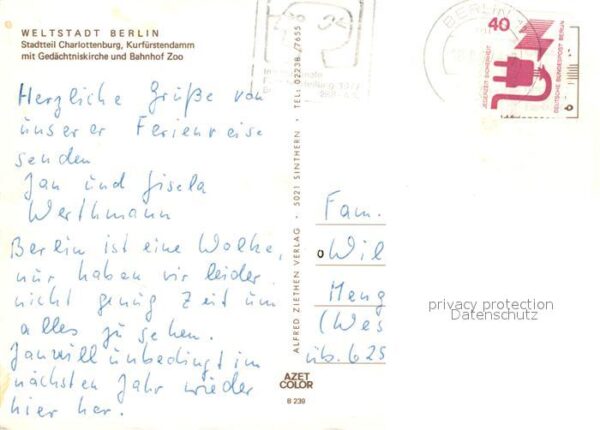 WELTSTADT BERLIN
Stadtteil Charlottenburg, Kurfürstendamm
mit Gedächtniskirche und Bahnhof Zoo
Herzliche Grüße von
unserer Ferienreise
senden
Jan und Gisela
Werthmann
Berlin ist eine Wolke,
nur haben wir leider
nicht genug Zeit um
alles zu sehen.
Jan will unbedingt im
nächsten Jahr wieder
hier her.
ALFRED ZIETHEN VERLAG · 5021 SINTHERN · TEL: 02238/7655
AZET
COLOR
B 239
BERLIN
40
JEDERZEIT SICHERHEIT
DEUTSCHE BUNDESPOST BERLIN
Fam.
Wil
Meng
(Wes
üb. 625
privacy protection
Datenschutz